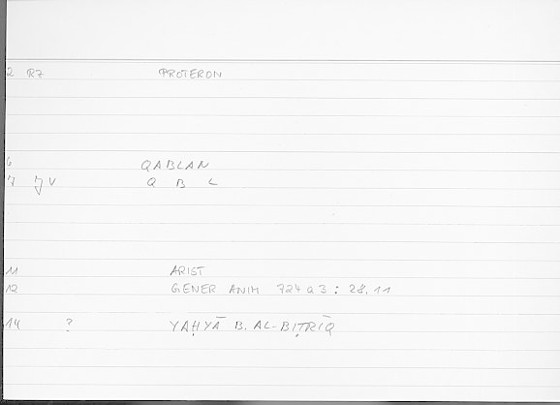 2 R7 PROTERON
6 QABLAN
7 V Q B L
11 ARIST
12 GENER ANIM 724 a 3 : 28,11
14 ? YAḤYĀ B. AL-BIṬRĪQ